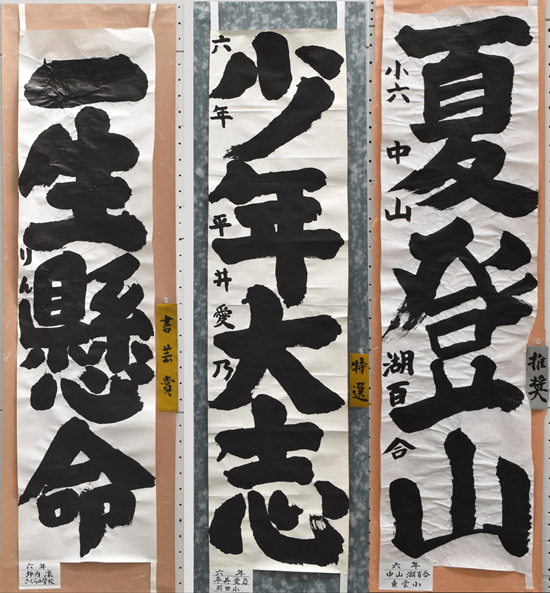 一生懸命
りん
書芸賞
六年
さくら小学校
少年大志
六年 平井愛乃
特選
六年
平井愛乃
夏登山
小六 中山 湖百合
推奨
六年
中山湖百合
東雲小